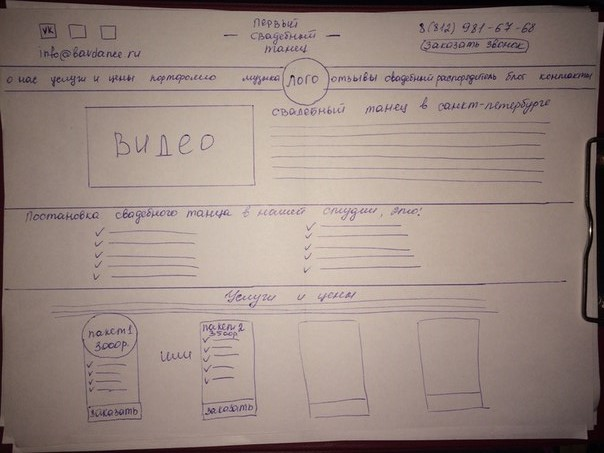 VK
info@bavdance.ru
Первый
— свадебный —
танец
8(812) 981-67-68
Заказать звонок
о нас услуги и цены портфолио музыка ЛОГО отзывы свадебный распорядитель блог контакты
ВИДЕО
свадебный танец в санкт-петербурге
Постановка свадебного танца в нашей студии, это:
Услуги и цены
пакет 1
3000р.
заказать
или
пакет 2
3500р.
заказать